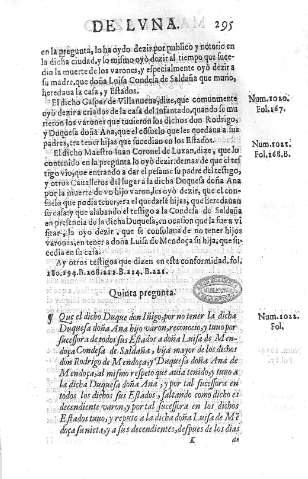 DE LVNA. 295
en la pregunta, lo ha oydo dezir por publico y notorio en
la dicha ciudad, y lo mismo oyò dezir al tiempo que suce-
dio la muerte de los varones, y especialmente oyò dezir a
su madre, que doña Luisa Condesa de Saldaña que murio,
heredaua la casa, y Estados.
El dicho Gaspar de Villanueua, dize, que comunmente
oyò dezir a criados de la casa del Infantado, quando se mu-
rieron los varones que tuuieron los dichos don Rodrigo,
y Duquesa doña Ana, que el cōsuelo que les quedaua a sus
padres, era tener hijas que sucedian en los Estados.
Num. 1020.
Fol. 167.
El dicho Maestro Iuan Coronel de Luxan, dize, que lo
contenido en la pregunta lo oyò dezir: demas de que el tes
tigo vio, que entrando a dar el pesame su padre del testigo,
y otros Caualleros del lugar a la dicha Duquesa doña Ana
por la muerte de vn hijo varon, les oyò dezir, que el con-
suelo que podia tener, era el quedarle hijas, que heredarian
su casa: y que alabando el testigo a la Condesa de Saldaña
en presencia de la dicha Duquesa, en ocasion que la fue a vi
sitar, la oyò dezir, que se consolaua de no tener hijos
varones, en tener a doña Luisa de Mendoça su hija, que su-
cedia en su casa.
Num. 1021.
Fol. 168. B.
Ay otros testigos que dizen en esta conformidad, fol.
180. 194. B. 208. 212. B. 214. B. 221.
Quinta pregunta.
¶ Que el dicho Duque don Iñigo, por no tener la dicha
Duquesa doña Ana hijo varon, reconocio, y tuuo por
sucessora de todos sus Estados a doña Luisa de Men-
doça Condesa de Saldaña, hija mayor de los dichos
don Rodrigo de Mendoça, y Duquesa doña Ana de
Mendoça, al mismo respeto que auia tenido, y tuuo a
la dicha Duquesa doña Ana, y por tal sucessora en
todos los dichos sus Estados, faltando como dicho es
decendiente varon, y por tal sucessora en los dichos
Estados tuuo, y reputò a la dicha doña Luisa de Mē
doça su nieta, y a sus decendientes, despues de los dias
Num. 1022.
Fol.
K de